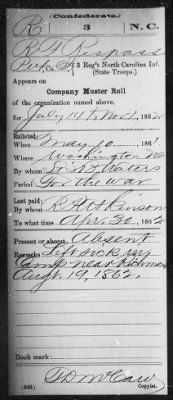 (Confederate.)
R 3 N.C.
R F Respass
Pvt, Co. I, 3 Reg't North Carolina Inf.
(State Troops.)
Appears on
Company Muster Roll
of the organization named above,
for July 1st to Nov 1, 1862.
Enlisted:
When May 10, 1861.
Where Washington NC
By whom
Period For the war
Last paid:
By whom
To what time Apr. 30, 1862.
Present or absent Absent
Remarks: Left sick in
Camp near Richmond
Augt. 19, 1862.
Book mark:
(642) Copyist.